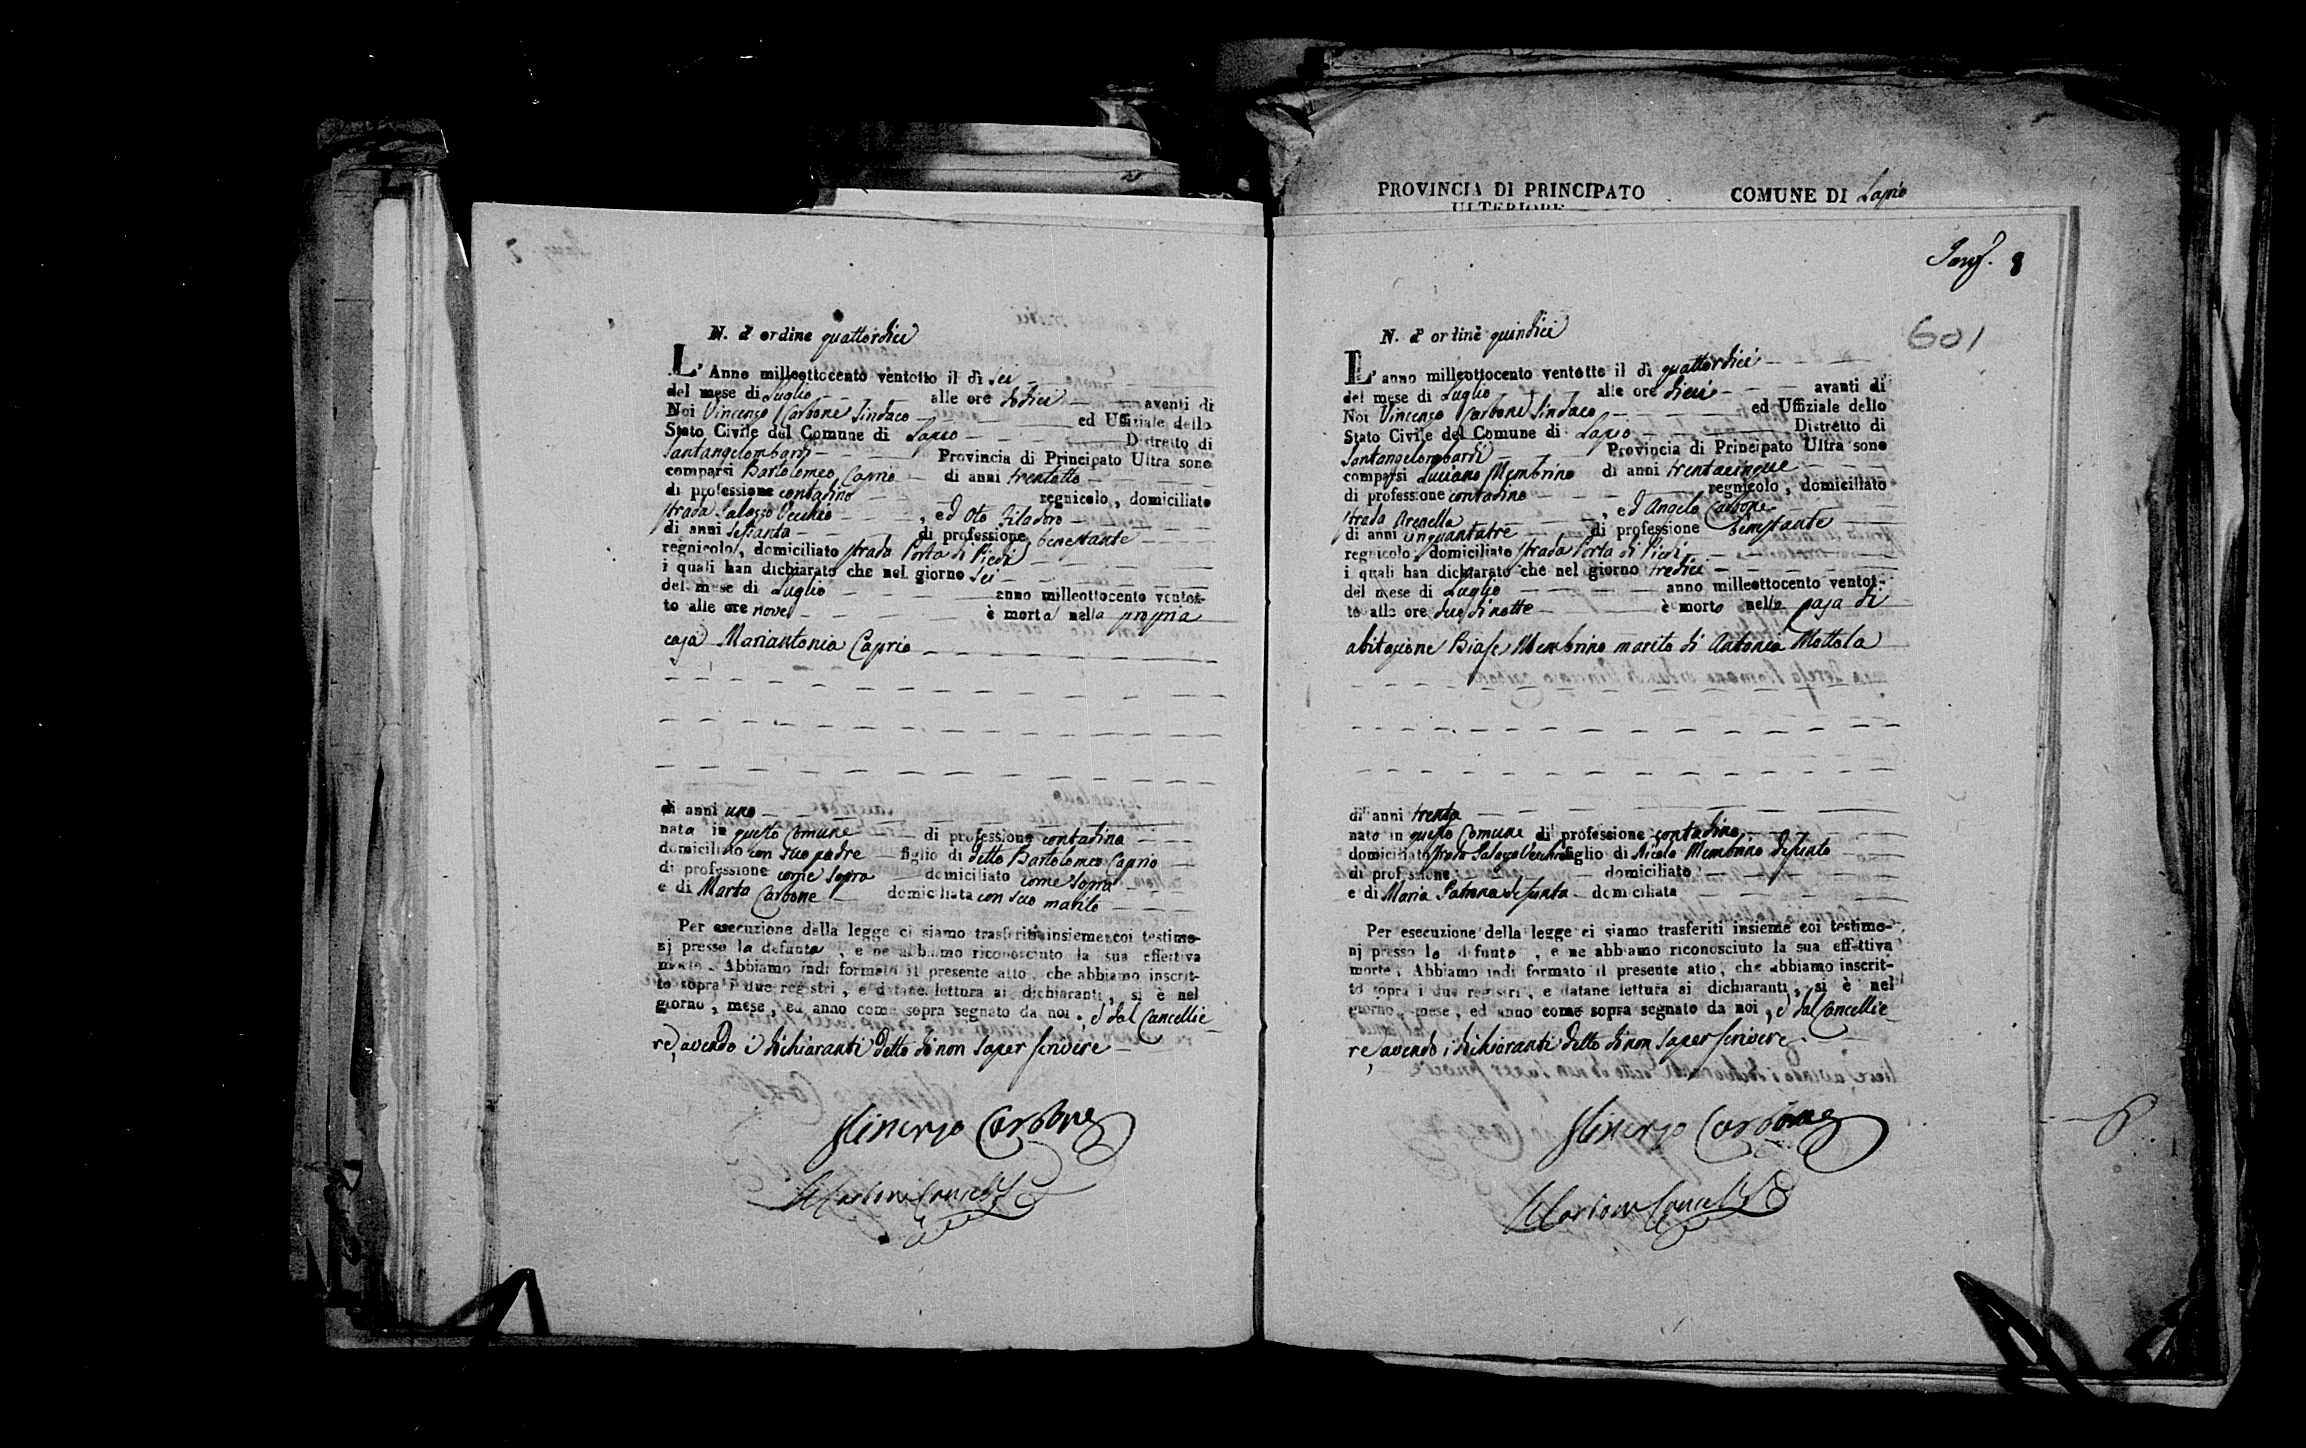 PROVINCIA DI PRINCIPATO ULTERIORE
COMUNE DI Lapio
N. d'ordine quattordici
L'Anno milleottocento ventotto il dì sei
del mese di Luglio alle ore dodici avanti di
Noi Vincenzo Carbone Sindaco ed Uffiziale dello
Stato Civile del Comune di Lapio Distretto di
Santangelombardi Provincia di Principato Ultra sono
comparsi Bartolomeo Caprio di anni trentotto
di professione contadino regnicolo, domiciliato
strada Palazzo Vecchio, ed Oto Filadoro
di anni sessanta di professione benestante
regnicolo, domiciliato strada Porta di Piedi
i quali han dichiarato che nel giorno sei
del mese di Luglio anno milleottocento ventot-
to alle ore nove è morta nella propria
casa Mariantonia Caprio
di anni uno
nata in questo Comune di professione contadina
domiciliato con suo padre figlio di detto Bartolomeo Caprio
di professione come sopra domiciliato come sopra
e di Marta Carbone domiciliata con suo marito
Per esecuzione della legge ci siamo trasferiti insieme coi testimo-
nj presso la defunta, e ne abbiamo riconosciuto la sua effettiva
morte. Abbiamo indi formato il presente atto, che abbiamo inscrit-
to sopra i due registri, e datane lettura ai dichiaranti, si è nel
giorno, mese, ed anno come sopra segnato da noi, e dal Cancellie-
re, avendo i dichiaranti detto di non saper scrivere
Vincenzo Carbone
8
601
N. d'ordine quindici
L'anno milleottocento ventotto il dì quattordici
del mese di Luglio alle ore dieci avanti di
Noi Vincenzo Carbone Sindaco ed Uffiziale dello
Stato Civile del Comune di Lapio Distretto di
Santangelombardi Provincia di Principato Ultra sono
comparsi Luciano Membrino di anni trentacinque
di professione contadino regnicolo, domiciliato
strada Arenella, ed Angelo Carbone
di anni cinquantatre di professione benestante
regnicolo, domiciliato strada Porta di Piedi
i quali han dichiarato che nel giorno tredici
del mese di Luglio anno milleottocento ventot-
to alle ore due di notte è morto nella casa di
abitazione Biase Membrino marito di Antonia Mottola
di anni trenta
nato in questo Comune di professione contadino
domiciliato strada Palazzo Vecchio figlio di Nicola Membrino defunto
di professione domiciliato
e di Maria defunta domiciliata
Per esecuzione della legge ci siamo trasferiti insieme coi testimo-
nj presso lo defunto, e ne abbiamo riconosciuto la sua effettiva
morte. Abbiamo indi formato il presente atto, che abbiamo inscrit-
to sopra i due registri, e datane lettura ai dichiaranti, si è nel
giorno, mese, ed anno come sopra segnato da noi, e dal Cancellie-
re, avendo i dichiaranti detto di non saper scrivere
Vincenzo Carbone